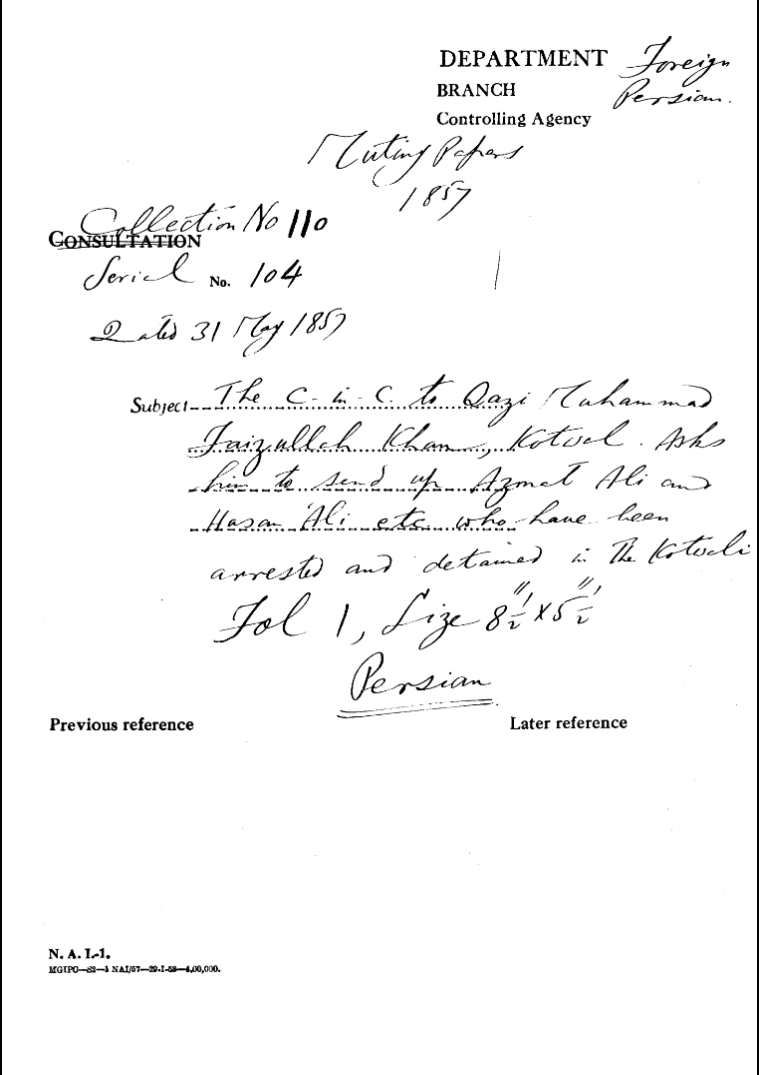 DEPARTMENT Foreign
BRANCH Persian.
Controlling Agency
Mutiny Papers
1857
Collection No 110
CONSULTATION
Serial No. 104
Dated 31 May 1857
Subject The C-in-C. to Qazi Muhammad
Faizullah Khan, Kotwal. Asks
him to send up Azmat Ali and
Hasan Ali etc who have been
arrested and detained in the Kotwali
Fol 1, Size 8½" x 5½"
Persian
Previous reference Later reference
N. A. I.-1.
MGIPC—S2—1 NAI/57—29-1-58—4,00,000.